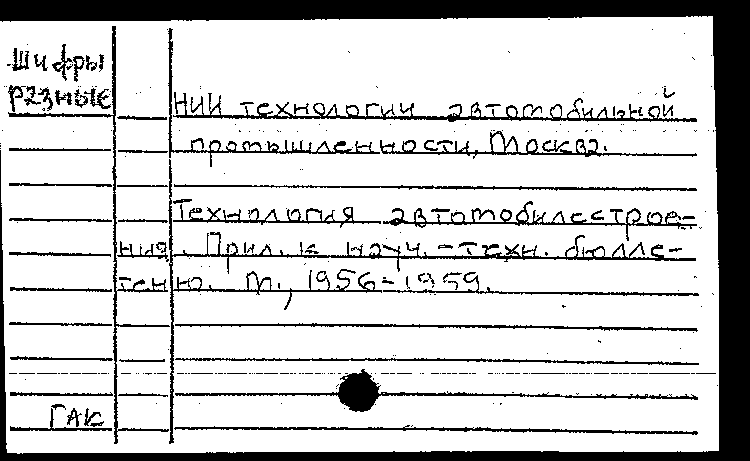 Шифры
разные
НИИ технологии автомобильной
промышленности, Москва.
Технология автомобилестрое-
ния. Прил. к науч.-техн. бюлле-
теню. М., 1956-1959.
ГАК